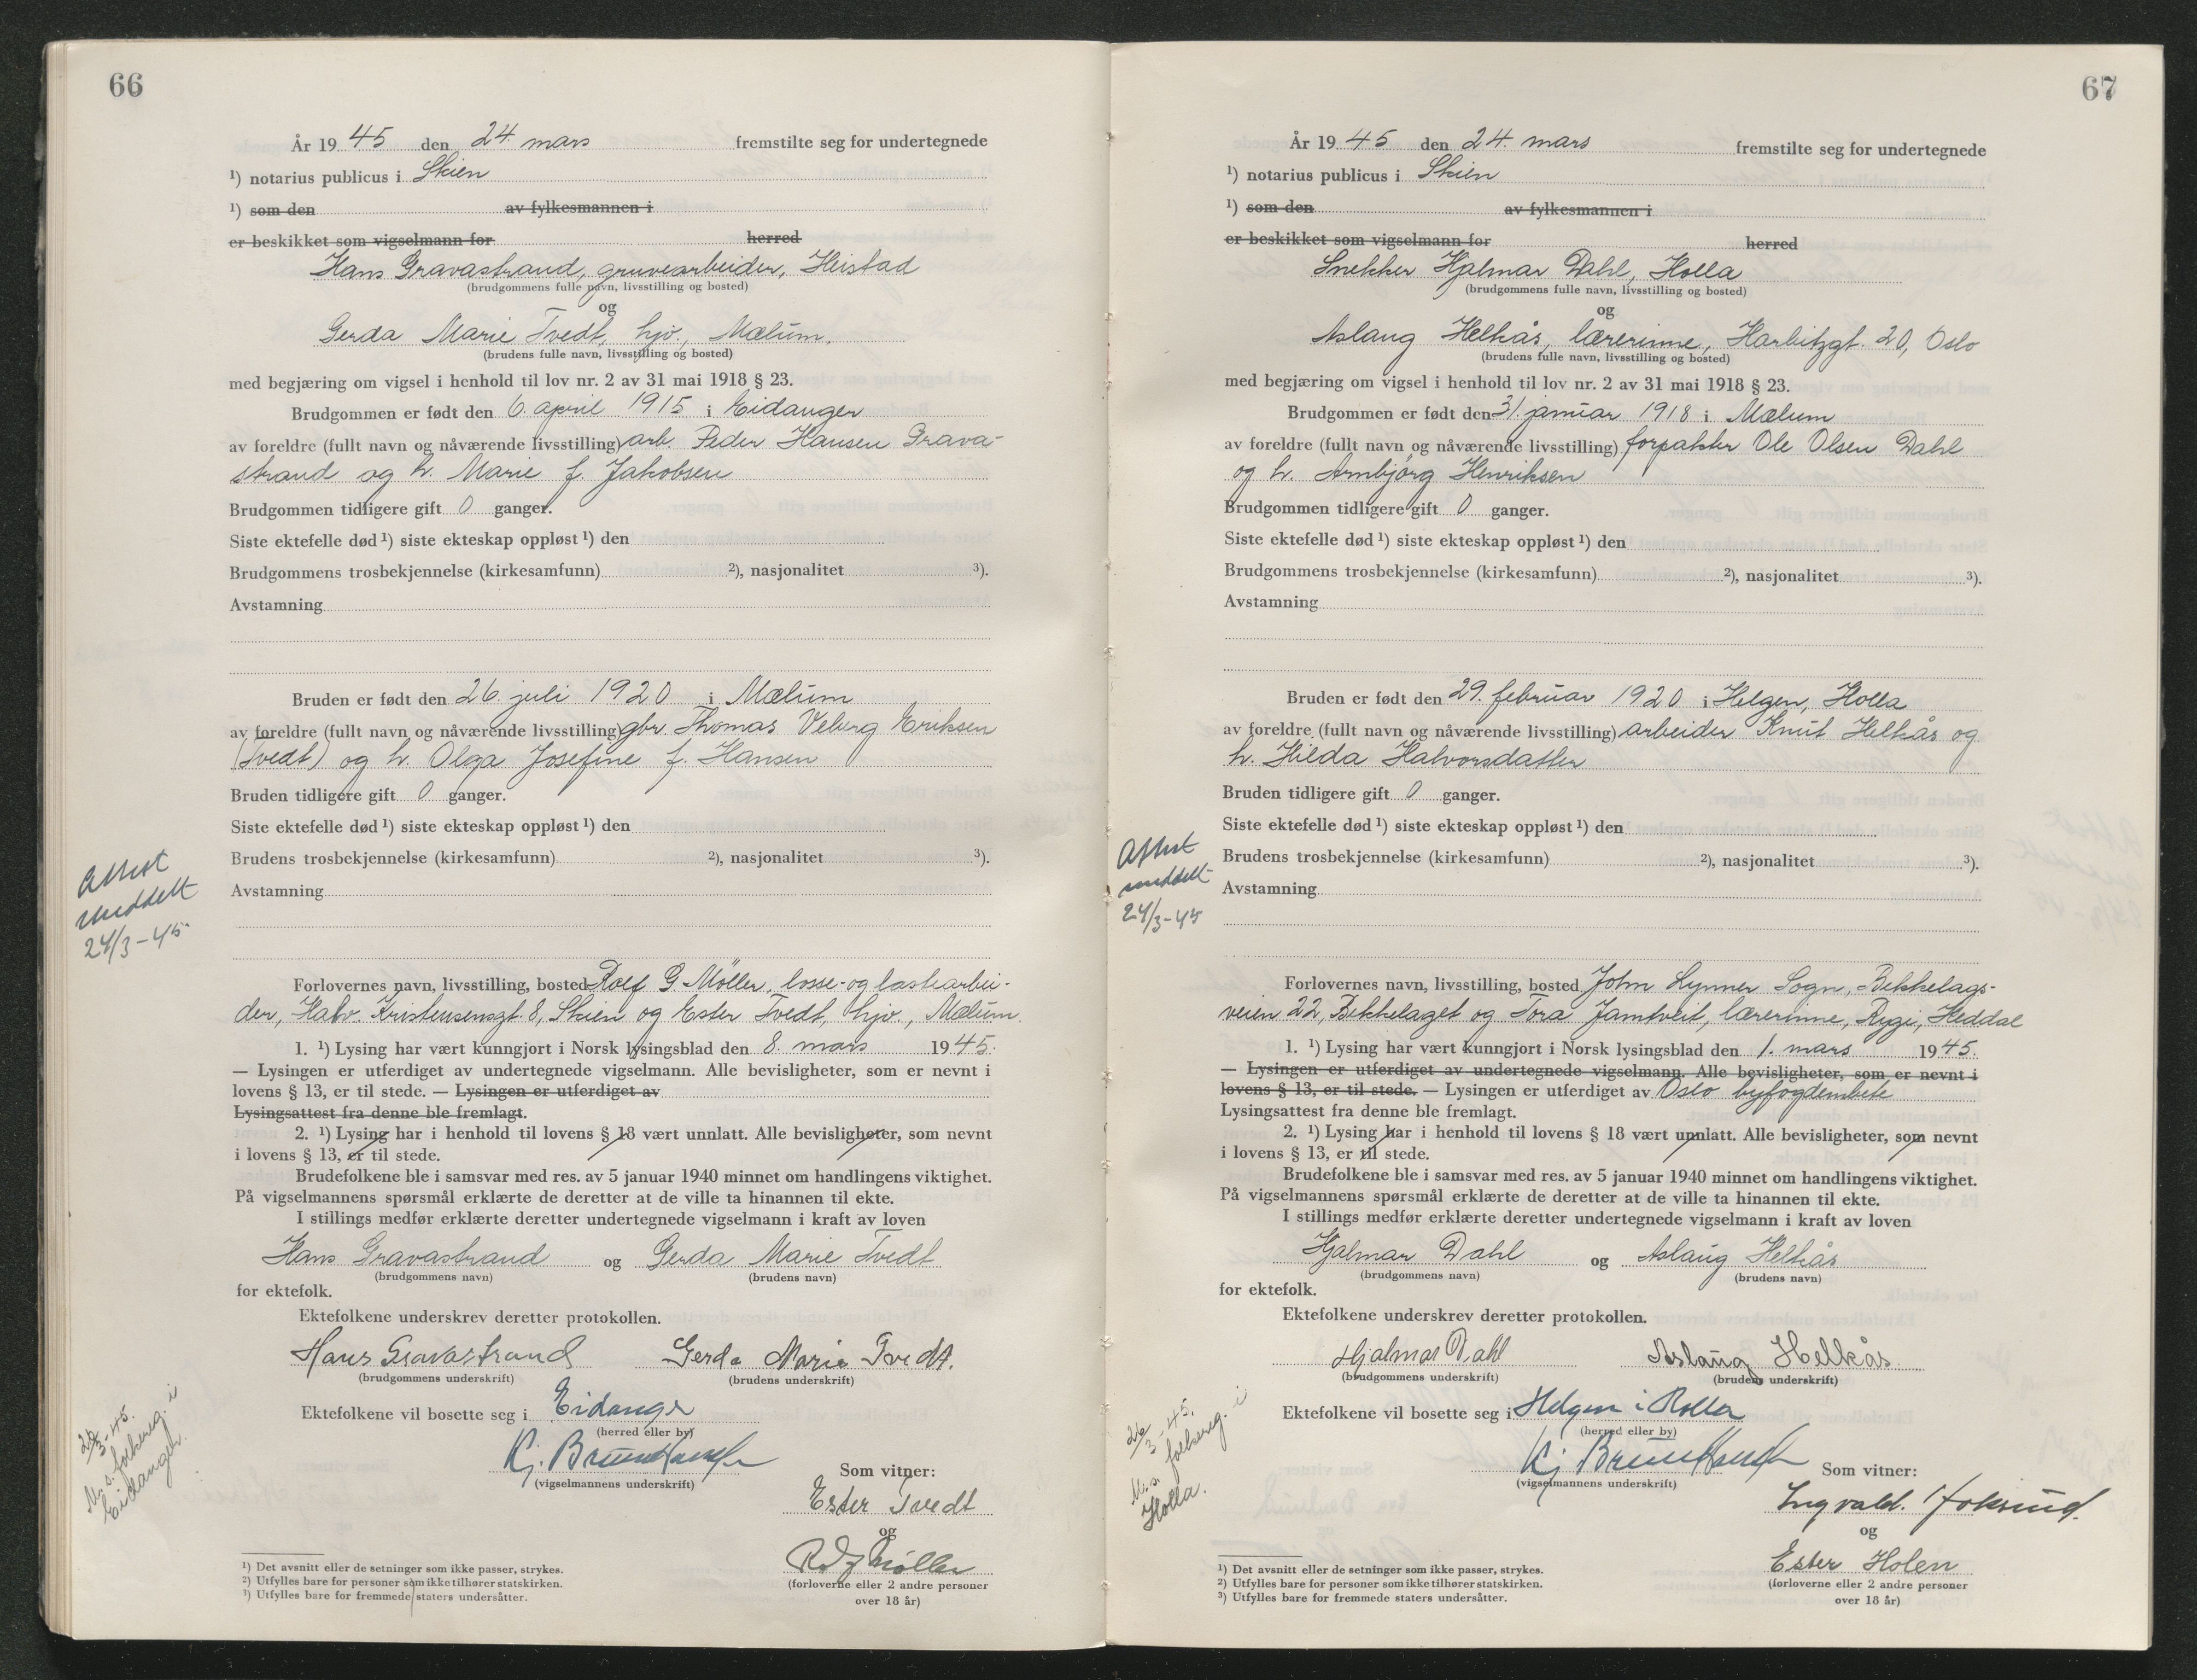 66
År 19 45 den 24. mars fremstilte seg for undertegnede
¹) notarius publicus i Skien
¹) som den av fylkesmannen i
er beskikket som vigselmann for herred
Hans Gravastrand, gruvearbeider, Heistad
(brudgommens fulle navn, livsstilling og bosted)
og
Gerda Marie Tvedt, hjv., Mælum.
(brudens fulle navn, livsstilling og bosted)
med begjæring om vigsel i henhold til lov nr. 2 av 31 mai 1918 § 23.
Brudgommen er født den 6. april 1915 i Eidanger
av foreldre (fullt navn og nåværende livsstilling) arb. Peder Hansen Grava-
strand og h. Marie f. Jakobsen
Brudgommen tidligere gift 0 ganger.
Siste ektefelle død ¹) siste ekteskap oppløst ¹) den
Brudgommens trosbekjennelse (kirkesamfunn) ²), nasjonalitet ³).
Avstamning
Bruden er født den 26. juli 1920 i Mælum
av foreldre (fullt navn og nåværende livsstilling) gbr. Thomas Veberg Eriksen
(Tvedt) og h. Olga Josefine f. Hansen
Bruden tidligere gift 0 ganger.
Siste ektefelle død ¹) siste ekteskap oppløst ¹) den
Brudens trosbekjennelse (kirkesamfunn) ²), nasjonalitet ³).
Avstamning
Attest
meddelt
24/3-45
Forlovernes navn, livsstilling, bosted Rolf G. Møller, losse- og lastearbei-
der, Halv. Kristensensgt. 8, Skien og Ester Tvedt, hjv., Mælum.
1. ¹) Lysing har vært kunngjort i Norsk lysingsblad den 8. mars 1945.
— Lysingen er utferdiget av undertegnede vigselmann. Alle bevisligheter, som er nevnt i
lovens § 13, er til stede. — Lysingen er utferdiget av
Lysingsattest fra denne ble fremlagt.
2. ¹) Lysing har i henhold til lovens § 18 vært unnlatt. Alle bevisligheter, som nevnt
i lovens § 13, er til stede.
Brudefolkene ble i samsvar med res. av 5 januar 1940 minnet om handlingens viktighet.
På vigselmannens spørsmål erklærte de deretter at de ville ta hinannen til ekte.
I stillings medfør erklærte deretter undertegnede vigselmann i kraft av loven
Hans Gravastrand og Gerda Marie Tvedt
(brudgommens navn) (brudens navn)
for ektefolk.
Ektefolkene underskrev deretter protokollen.
Hans Gravastrand Gerda Marie Tvedt.
(brudgommens underskrift) (brudens underskrift)
Ektefolkene vil bosette seg i Eidanger
(herred eller by)
26/3-45.
M. s. folkereg. i
Eidanger.
(vigselmannens underskrift)
Som vitner:
Ester Tvedt
og
Rolf Møller
(forloverne eller 2 andre personer
over 18 år)
¹) Det avsnitt eller de setninger som ikke passer, strykes.
²) Utfylles bare for personer som ikke tilhører statskirken.
³) Utfylles bare for fremmede staters undersåtter.
67
År 19 45 den 24. mars fremstilte seg for undertegnede
¹) notarius publicus i Skien
¹) som den av fylkesmannen i
er beskikket som vigselmann for herred
Snekker Hjalmar Dahl, Holla
(brudgommens fulle navn, livsstilling og bosted)
og
Aslaug Helkås, lærerinne, Harbitzgt. 20, Oslo
(brudens fulle navn, livsstilling og bosted)
med begjæring om vigsel i henhold til lov nr. 2 av 31 mai 1918 § 23.
Brudgommen er født den 31. januar 1918 i Mælum
av foreldre (fullt navn og nåværende livsstilling) forpakter Ole Olsen Dahl
og h. Arnbjørg Henriksen
Brudgommen tidligere gift 0 ganger.
Siste ektefelle død ¹) siste ekteskap oppløst ¹) den
Brudgommens trosbekjennelse (kirkesamfunn) ²), nasjonalitet ³).
Avstamning
Bruden er født den 29. februar 1920 i Helgen, Holla
av foreldre (fullt navn og nåværende livsstilling) arbeider Knut Helkås og
h. Hilda Halvorsdatter
Bruden tidligere gift 0 ganger.
Siste ektefelle død ¹) siste ekteskap oppløst ¹) den
Brudens trosbekjennelse (kirkesamfunn) ²), nasjonalitet ³).
Avstamning
Attest
meddelt
24/3-45
Forlovernes navn, livsstilling, bosted John Lynner Sogn, Bekkelags-
veien 22, Bekkelaget og Tora Jamtveit, lærerinne, Rygi, Heddal
1. ¹) Lysing har vært kunngjort i Norsk lysingsblad den 1. mars 1945.
— Lysingen er utferdiget av undertegnede vigselmann. Alle bevisligheter, som er nevnt i
lovens § 13, er til stede. — Lysingen er utferdiget av Oslo byfogdembete
Lysingsattest fra denne ble fremlagt.
2. ¹) Lysing har i henhold til lovens § 18 vært unnlatt. Alle bevisligheter, som nevnt
i lovens § 13, er til stede.
Brudefolkene ble i samsvar med res. av 5 januar 1940 minnet om handlingens viktighet.
På vigselmannens spørsmål erklærte de deretter at de ville ta hinannen til ekte.
I stillings medfør erklærte deretter undertegnede vigselmann i kraft av loven
Hjalmar Dahl og Aslaug Helkås
(brudgommens navn) (brudens navn)
for ektefolk.
Ektefolkene underskrev deretter protokollen.
Hjalmar Dahl Aslaug Helkås
(brudgommens underskrift) (brudens underskrift)
Ektefolkene vil bosette seg i Helgen i Holla
(herred eller by)
26/3-45.
M. s. folkereg. i
Holla.
(vigselmannens underskrift)
Som vitner:
Ingvald
og
Ester Holen
(forloverne eller 2 andre personer
over 18 år)
¹) Det avsnitt eller de setninger som ikke passer, strykes.
²) Utfylles bare for personer som ikke tilhører statskirken.
³) Utfylles bare for fremmede staters undersåtter.